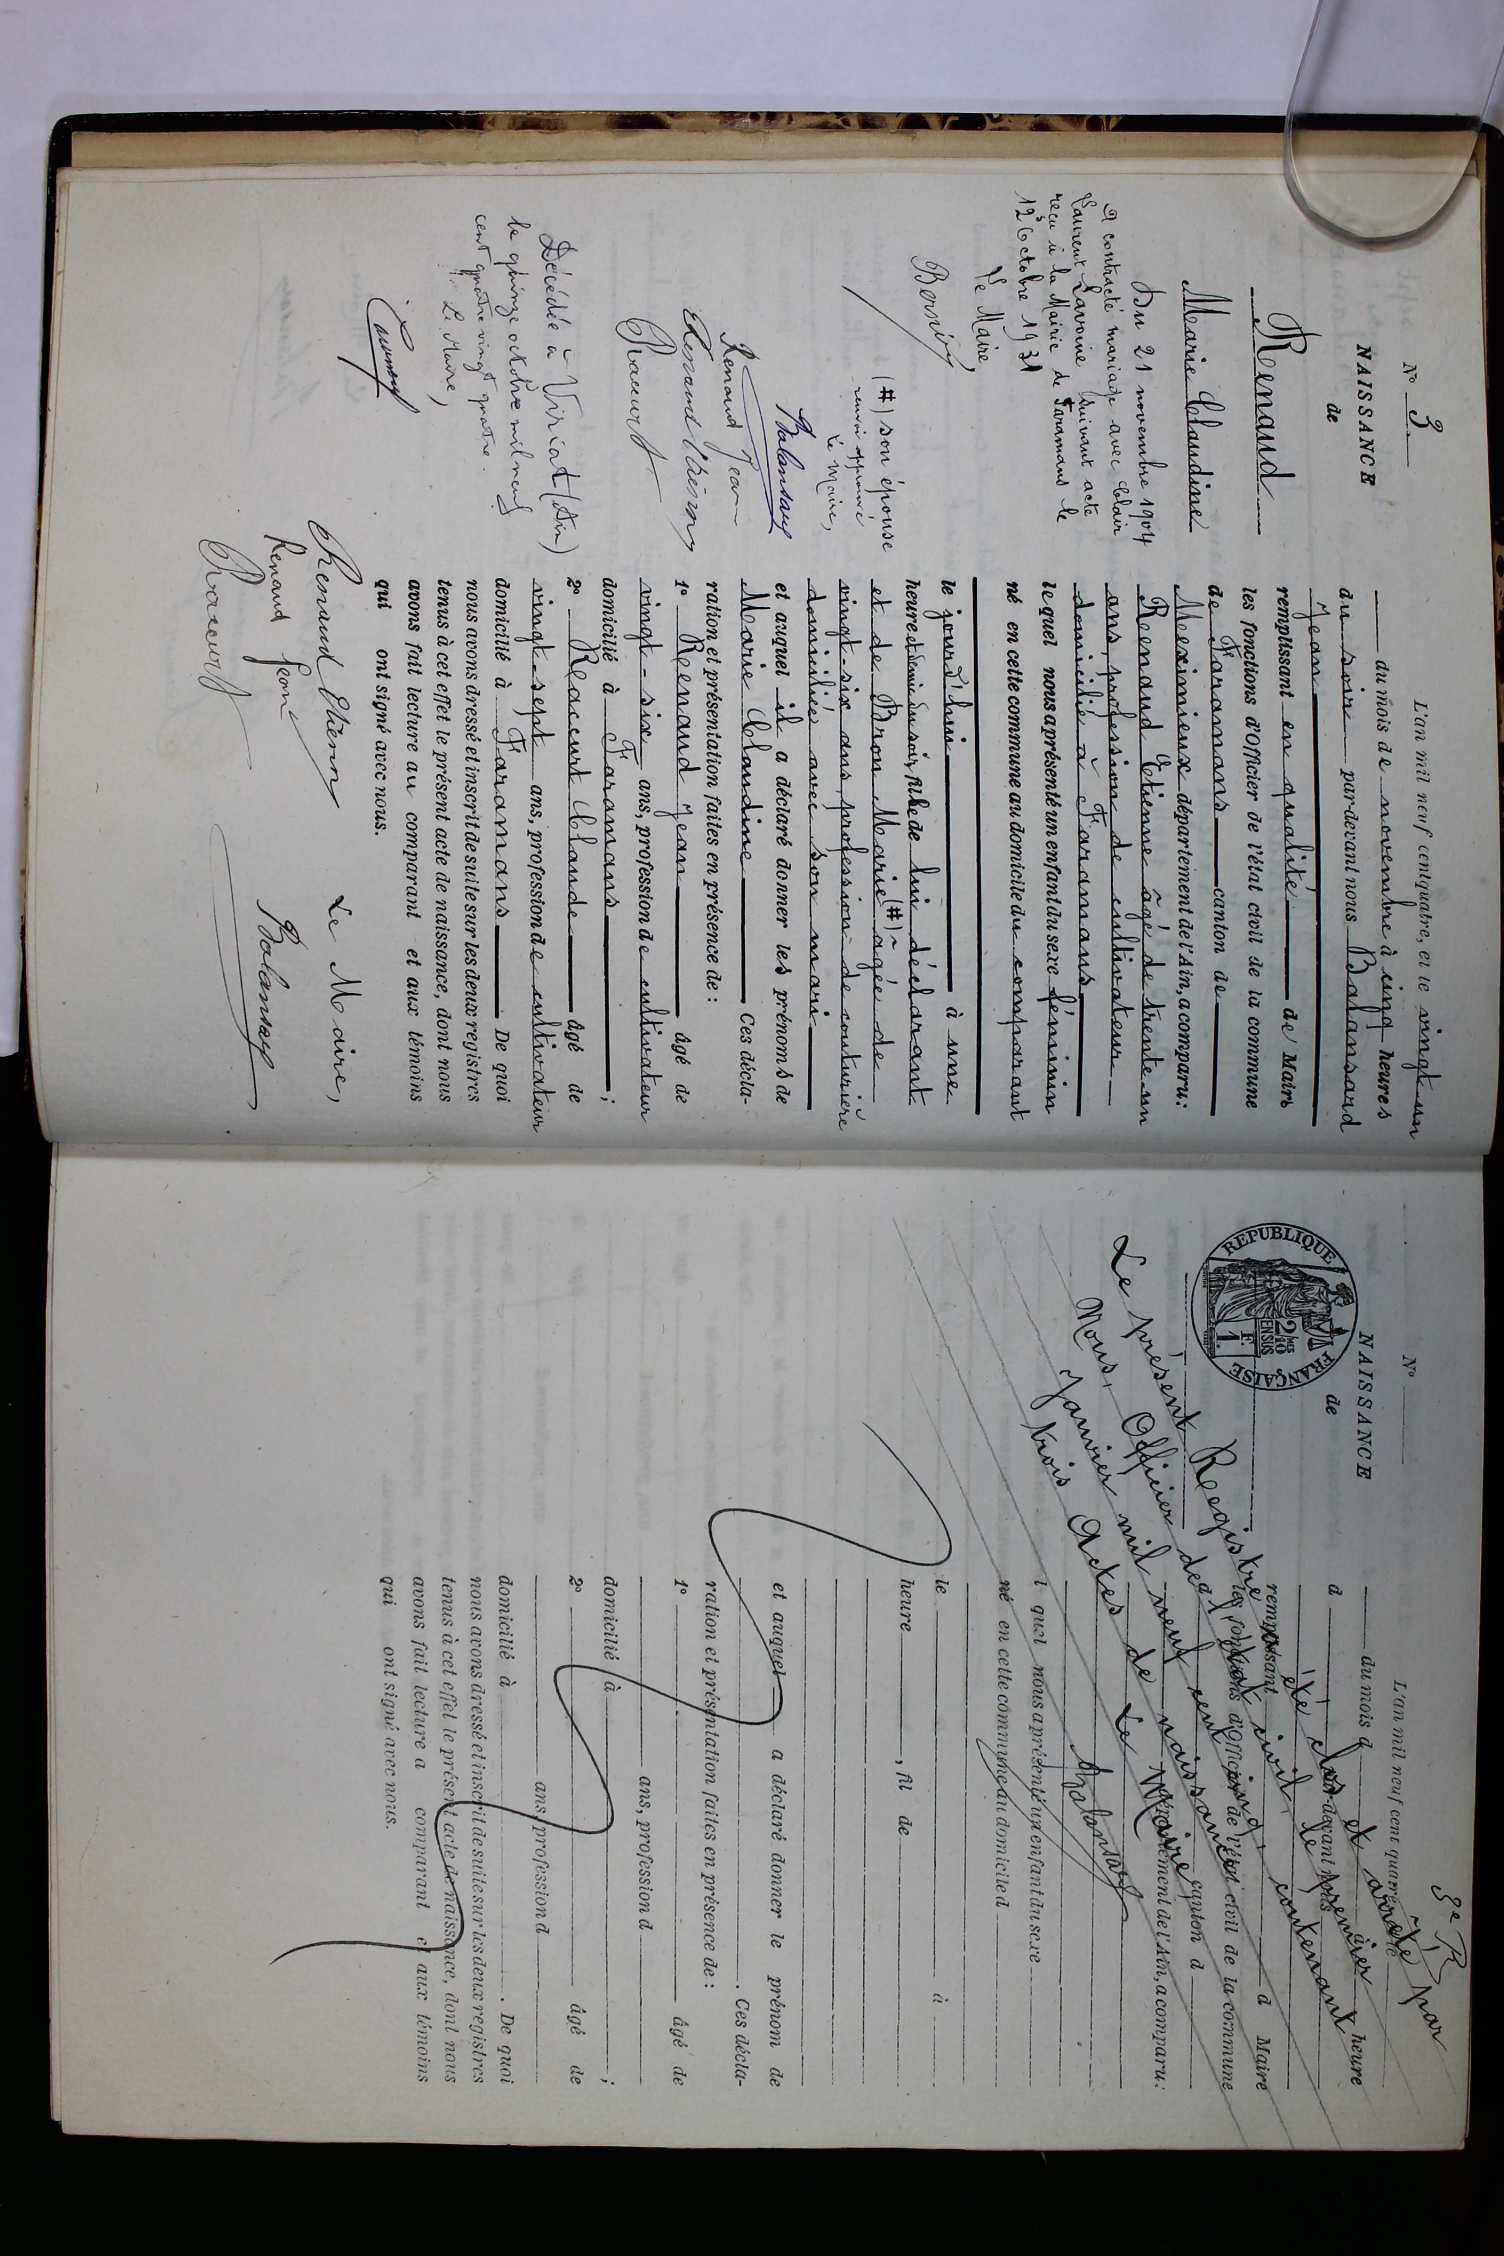 N° 3
NAISSANCE
de
Renaud
Marie Claudine
Du 21 novembre 1904
A contracté mariage avec Clair
Laurent Lavoine suivant acte
reçu à la Mairie de Faramans le
12 Octobre 1931
Le Maire,
(#) son épouse
renvoi approuvé
Le Maire,
Balansard
Renaud Jean
Renaud Etienne
Raccurt
Décédée à Viriat (Ain)
le quinze octobre mil neuf
cent quatre vingt quatre.
Le Maire,
L'an mil neuf cent quatre, et le vingt-un
du mois de novembre à cinq heures
du soir par-devant nous Balansard
Jean
remplissant en qualité de Maire
les fonctions d'Officier de l'état civil de la commune
de Faramans canton de
Meximieux département de l'Ain, a comparu:
Renaud Etienne âgé de trente un
ans, profession de cultivateur
domicilié à Faramans
lequel nous a présenté un enfant du sexe féminin
né en cette commune au domicile du comparant
le jourd'hui à une
heure et demie du soir, fille de lui déclarant
et de Brou Marie (#) agée de
vingt-six ans, profession de couturière
domiciliée avec son mari
et auquel il a déclaré donner les prénoms de
Marie Claudine Ces décla-
ration et présentation faites en présence de :
1° Renaud Jean âgé de
vingt-six ans, profession de cultivateur
domicilié à Faramans ;
2° Raccurt Claude âgé de
vingt-sept ans, profession de cultivateur
domicilié à Faramans De quoi
nous avons dressé et inscrit de suite sur les deux registres
tenus à cet effet le présent acte de naissance, dont nous
avons fait lecture au comparant et aux témoins
qui ont signé avec nous.
Renaud Etienne Le Maire,
Renaud Jean Balansard
Raccurt
3e R
N°
NAISSANCE
de
REPUBLIQUE FRANÇAISE
2/10 MES
EN SUS
1 F.
Le présent Registre a été clos et arrêté par
Nous, Officier de l'état civil, le premier
Janvier mil neuf cent cinq, contenant
trois Actes de naissance
Le Maire
Balansard
L'an mil neuf cent quatre, et le
du mois d à heure
d par-devant nous
remplissant d Maire
les fonctions d'Officier de l'état civil de la commune
d canton d
département de l'Ain, a comparu:
l quel nous a présenté un enfant du sexe
né en cette commune au domicile d
le à
heure , fil de
et auquel a déclaré donner le prénom de
. Ces décla-
ration et présentation faites en présence de :
1° âgé de
ans, profession d
domicilié à ;
2° âgé de
ans, profession d
domicilié à . De quoi
nous avons dressé et inscrit de suite sur les deux registres
tenus à cet effet le présent acte de naissance, dont nous
avons fait lecture a comparant et aux témoins
qui ont signé avec nous.